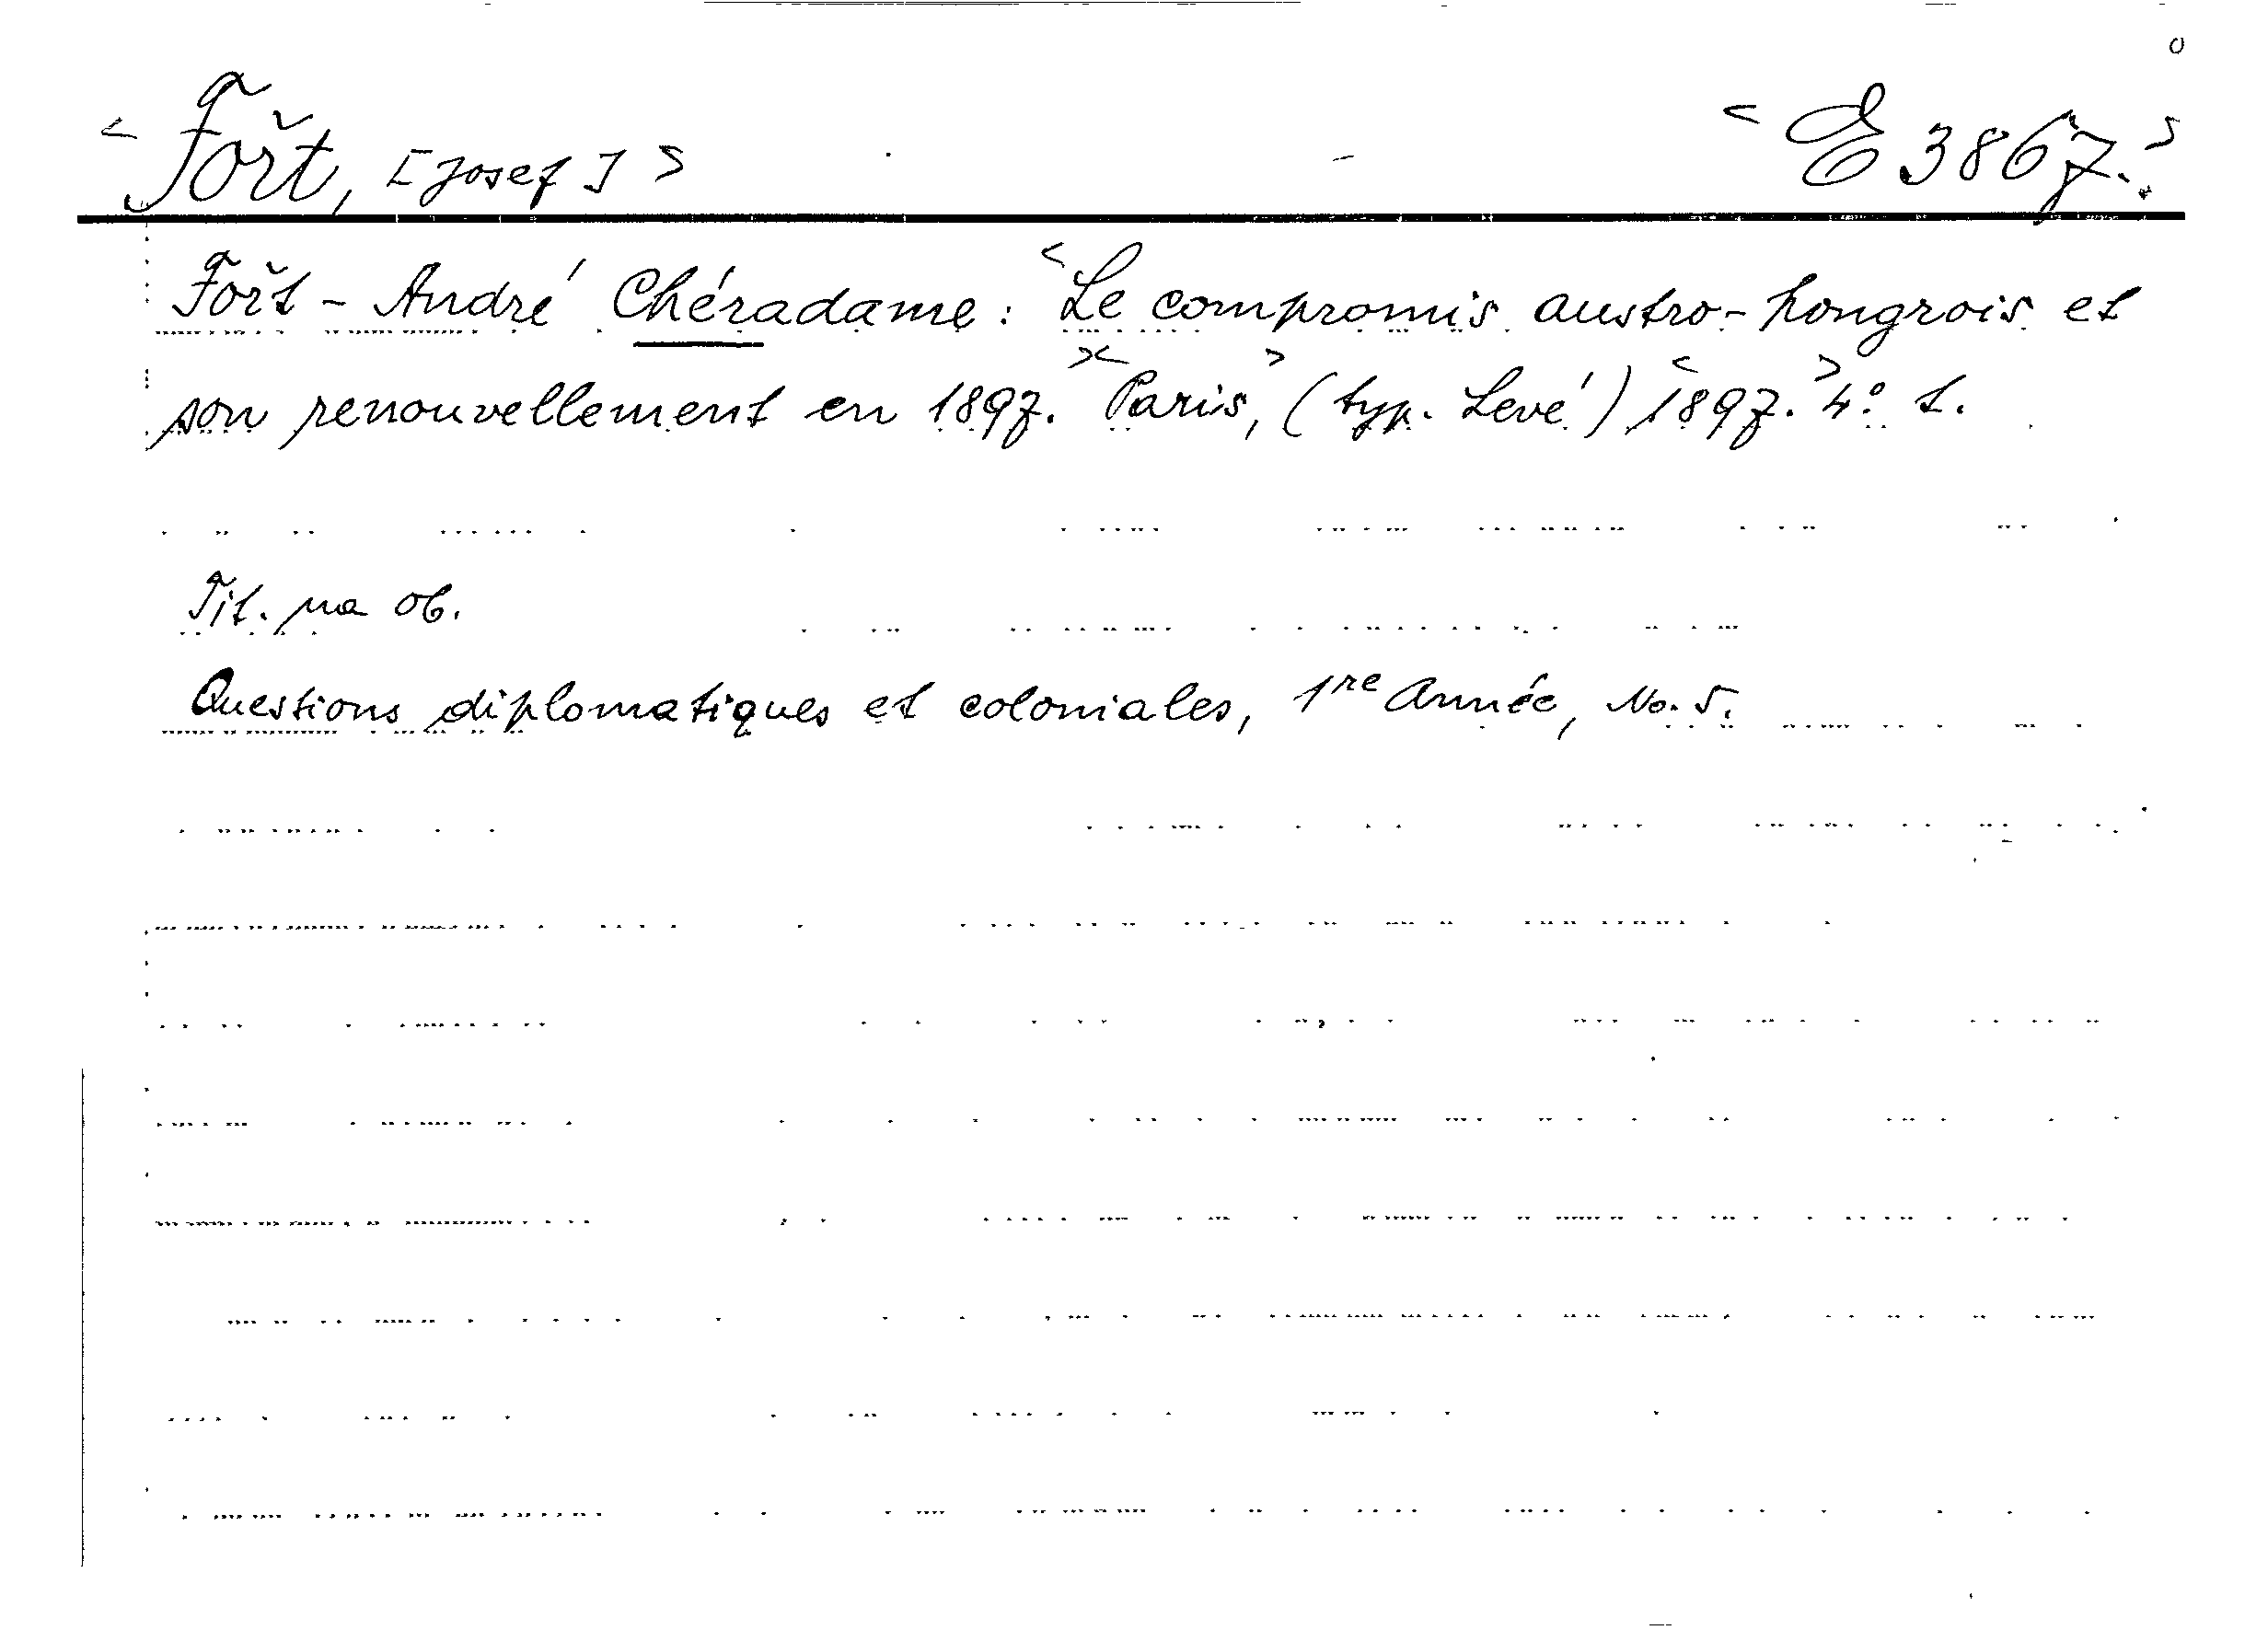 <Fořt, [Josef]> <E 3867.>
Fořt - André Chéradame: <Le compromis austro-hongrois et
son renouvellement en 1897.> <Paris,> (typ. Levé) <1897.> 4° 1.
Tit. na ob.
Questions diplomatiques et coloniales, 1re Année, No. 5.